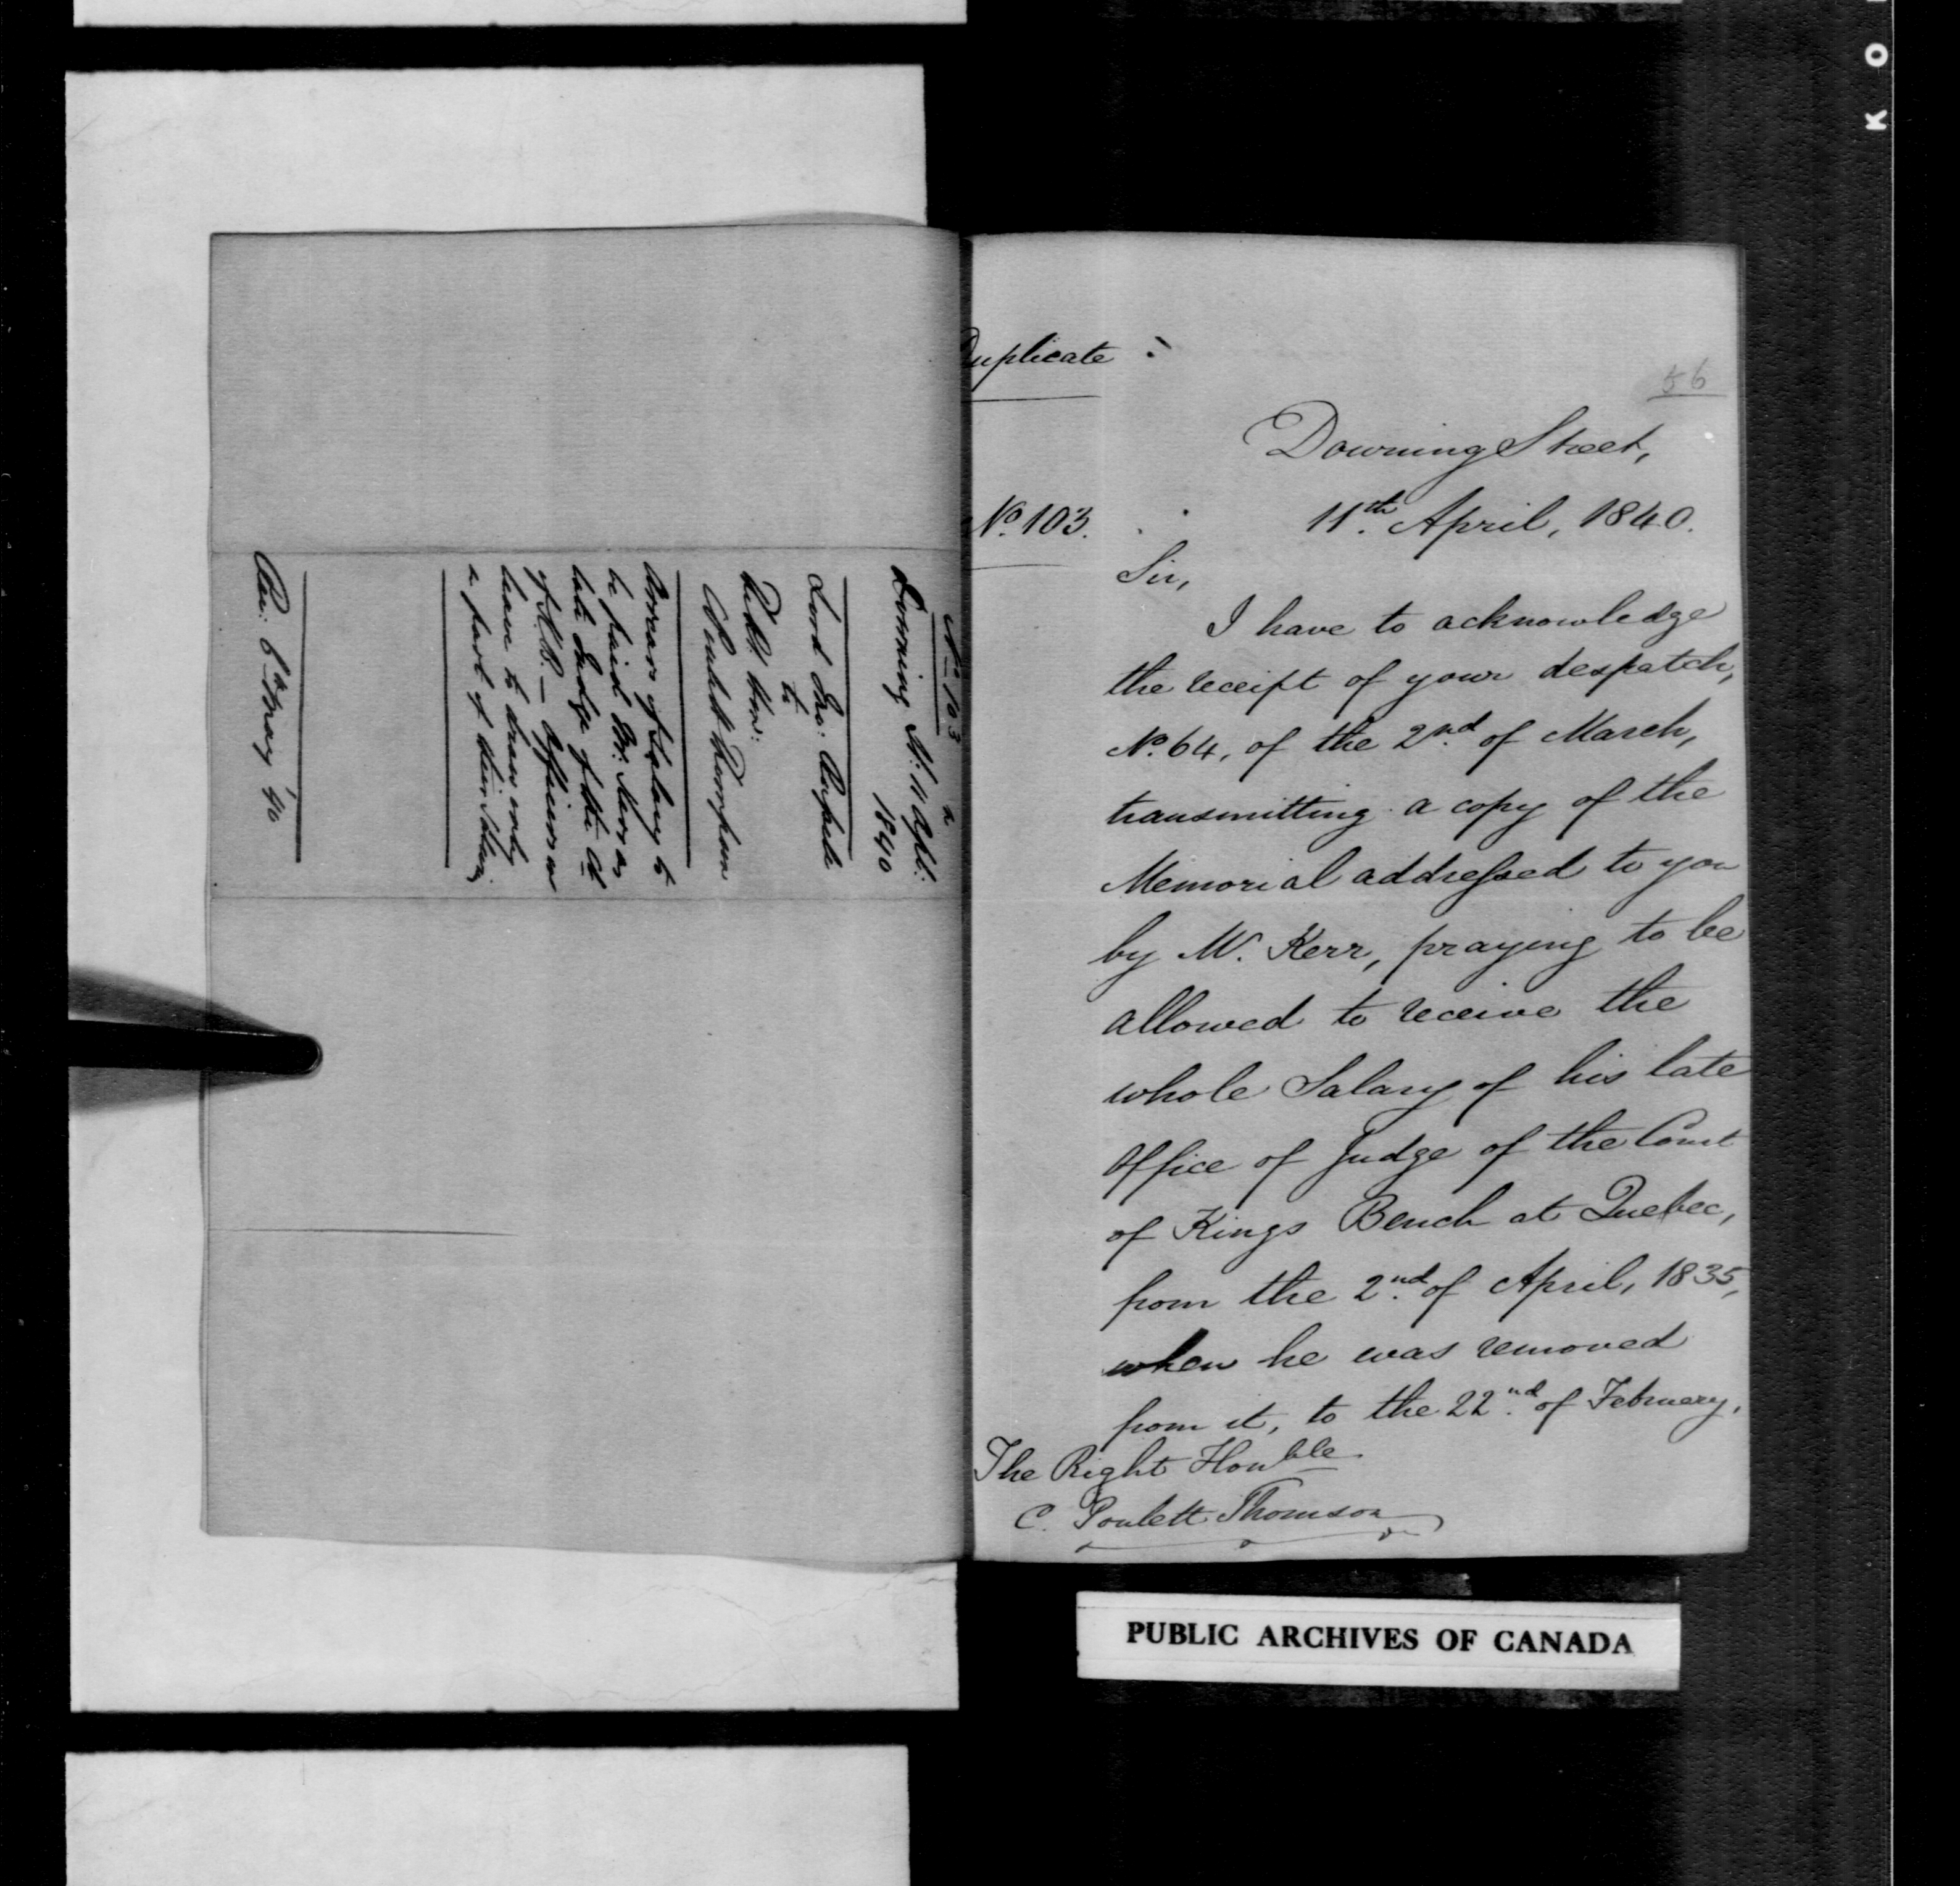 No 103
Downing St: 11 April:
1840
Lord Jno: Russell
to
Rt. Hon:
C. Poulett Thomson
Arrears of Salary to
be paid Mr. Kerr as
late Judge of the Ct
of K.B. — Officers on
leave to draw only
a part of their
Rec: 6th May '40
Duplicate
56
Downing Street,
No. 103.
11th April, 1840.
Sir,
I have to acknowledge
the receipt of your despatch,
No. 64, of the 2nd of March,
transmitting a copy of the
Memorial addressed to you
by Mr. Kerr, praying to be
allowed to receive the
whole Salary of his late
Office of Judge of the Court
of Kings Bench at Quebec,
from the 2nd of April, 1835,
when he was removed
from it, to the 22nd of February,
The Right Honble
C. Poulett Thomson
PUBLIC ARCHIVES OF CANADA
K O